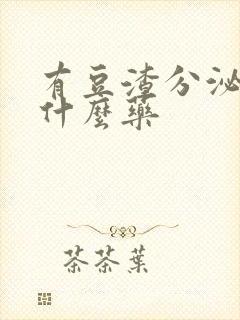 有豆渣分泌
什麼藥
茶茶葉